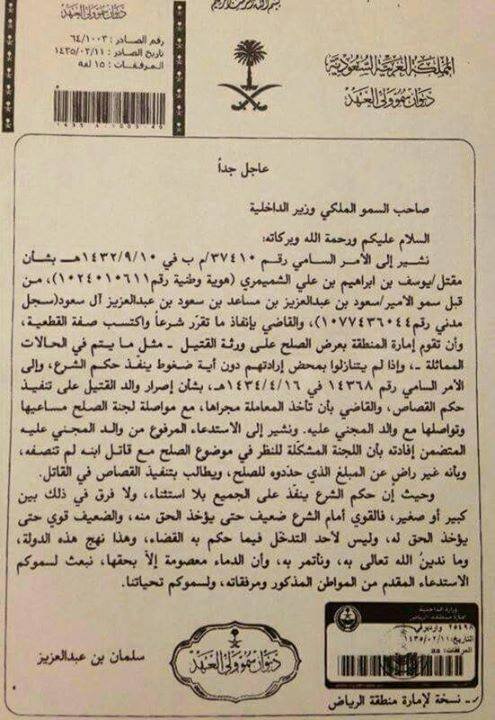 بسم الله الرحمن الرحيم
المملكة العربية السعودية
ديوان سمو ولي العهد
ديوان سمو ولي العهد
رقم الصادر : ٦٤/١٠٠٣
تاريخ الصادر : ١٤٣٥/٠٢/١١
المرفقات : ١٥ لفة
عاجل جداً
صاحب السمو الملكي وزير الداخلية
السلام عليكم ورحمة الله وبركاته:
نشير إلى الأمر السامي رقم ٣٧٤١٠/م ب في ١٤٣٢/٩/١٠هـ بشأن
مقتل/يوسف بن ابراهيم بن علي الشميمري (هوية وطنية رقم١٠٢٤٠١٠٦١١)، من
قبل سمو الامير/سعود بن عبدالعزيز بن مساعد بن سعود بن عبدالعزيز آل سعود(سجل
مدني رقم١٠٧٧٤٣٦٠٤٤)، والقاضي بإنفاذ ما تقرّر شرعاً واكتسب صفة القطعية،
وأن تقوم إمارة المنطقة بعرض الصلح على ورثة القتيل - مثل ما يتم في الحالات
المماثلة -، وإذا لم يتنازلوا بمحض إرادتهم دون أية ضغوط ينفذ حكم الشرع، وإلى
الأمر السامي رقم ١٤٣٦٨ في ١٤٣٤/٤/١٦هـ، بشأن إصرار والد القتيل على تنفيذ
حكم القصاص، والقاضي بأن تأخذ المعاملة مجراها، مع مواصلة لجنة الصلح مساعيها
وتواصلها مع والد المجني عليه. ونشير إلى الاستدعاء المرفوع من والد المجني عليه
المتضمن إفادته بأن اللجنة المشكّلة للنظر في موضوع الصلح مع قاتل ابنه لم تنصفه،
وبأنه غير راضٍ عن المبلغ الذي حدّدوه للصلح، ويطالب بتنفيذ القصاص في القاتل.
وحيث إن حكم الشرع ينفّذ على الجميع بلا استثناء، ولا فرق في ذلك بين
كبير أو صغير، فالقوي أمام الشرع ضعيف حتى يؤخذ الحق منه، والضعيف قوي حتى
يؤخذ الحق له، وليس لأحد التدخّل فيما حكم به القضاء، وهذا نهج هذه الدولة،
وما ندينُ الله تعالى به، ونأتمر به، وأن الدماء معصومة إلاّ بحقها، نبعث لسموكم
الاستدعاء المقدم من المواطن المذكور ومرفقاته، ولسموكم تحياتنا.
ديوان سمو ولي العهد
سلمان بن عبدالعزيز
وزارة الداخلية
إمارة منطقة الرياض
التاريخ: ١٤٣٥/٠٢/١١
المرفقات:
- نسخة لإمارة منطقة الرياض